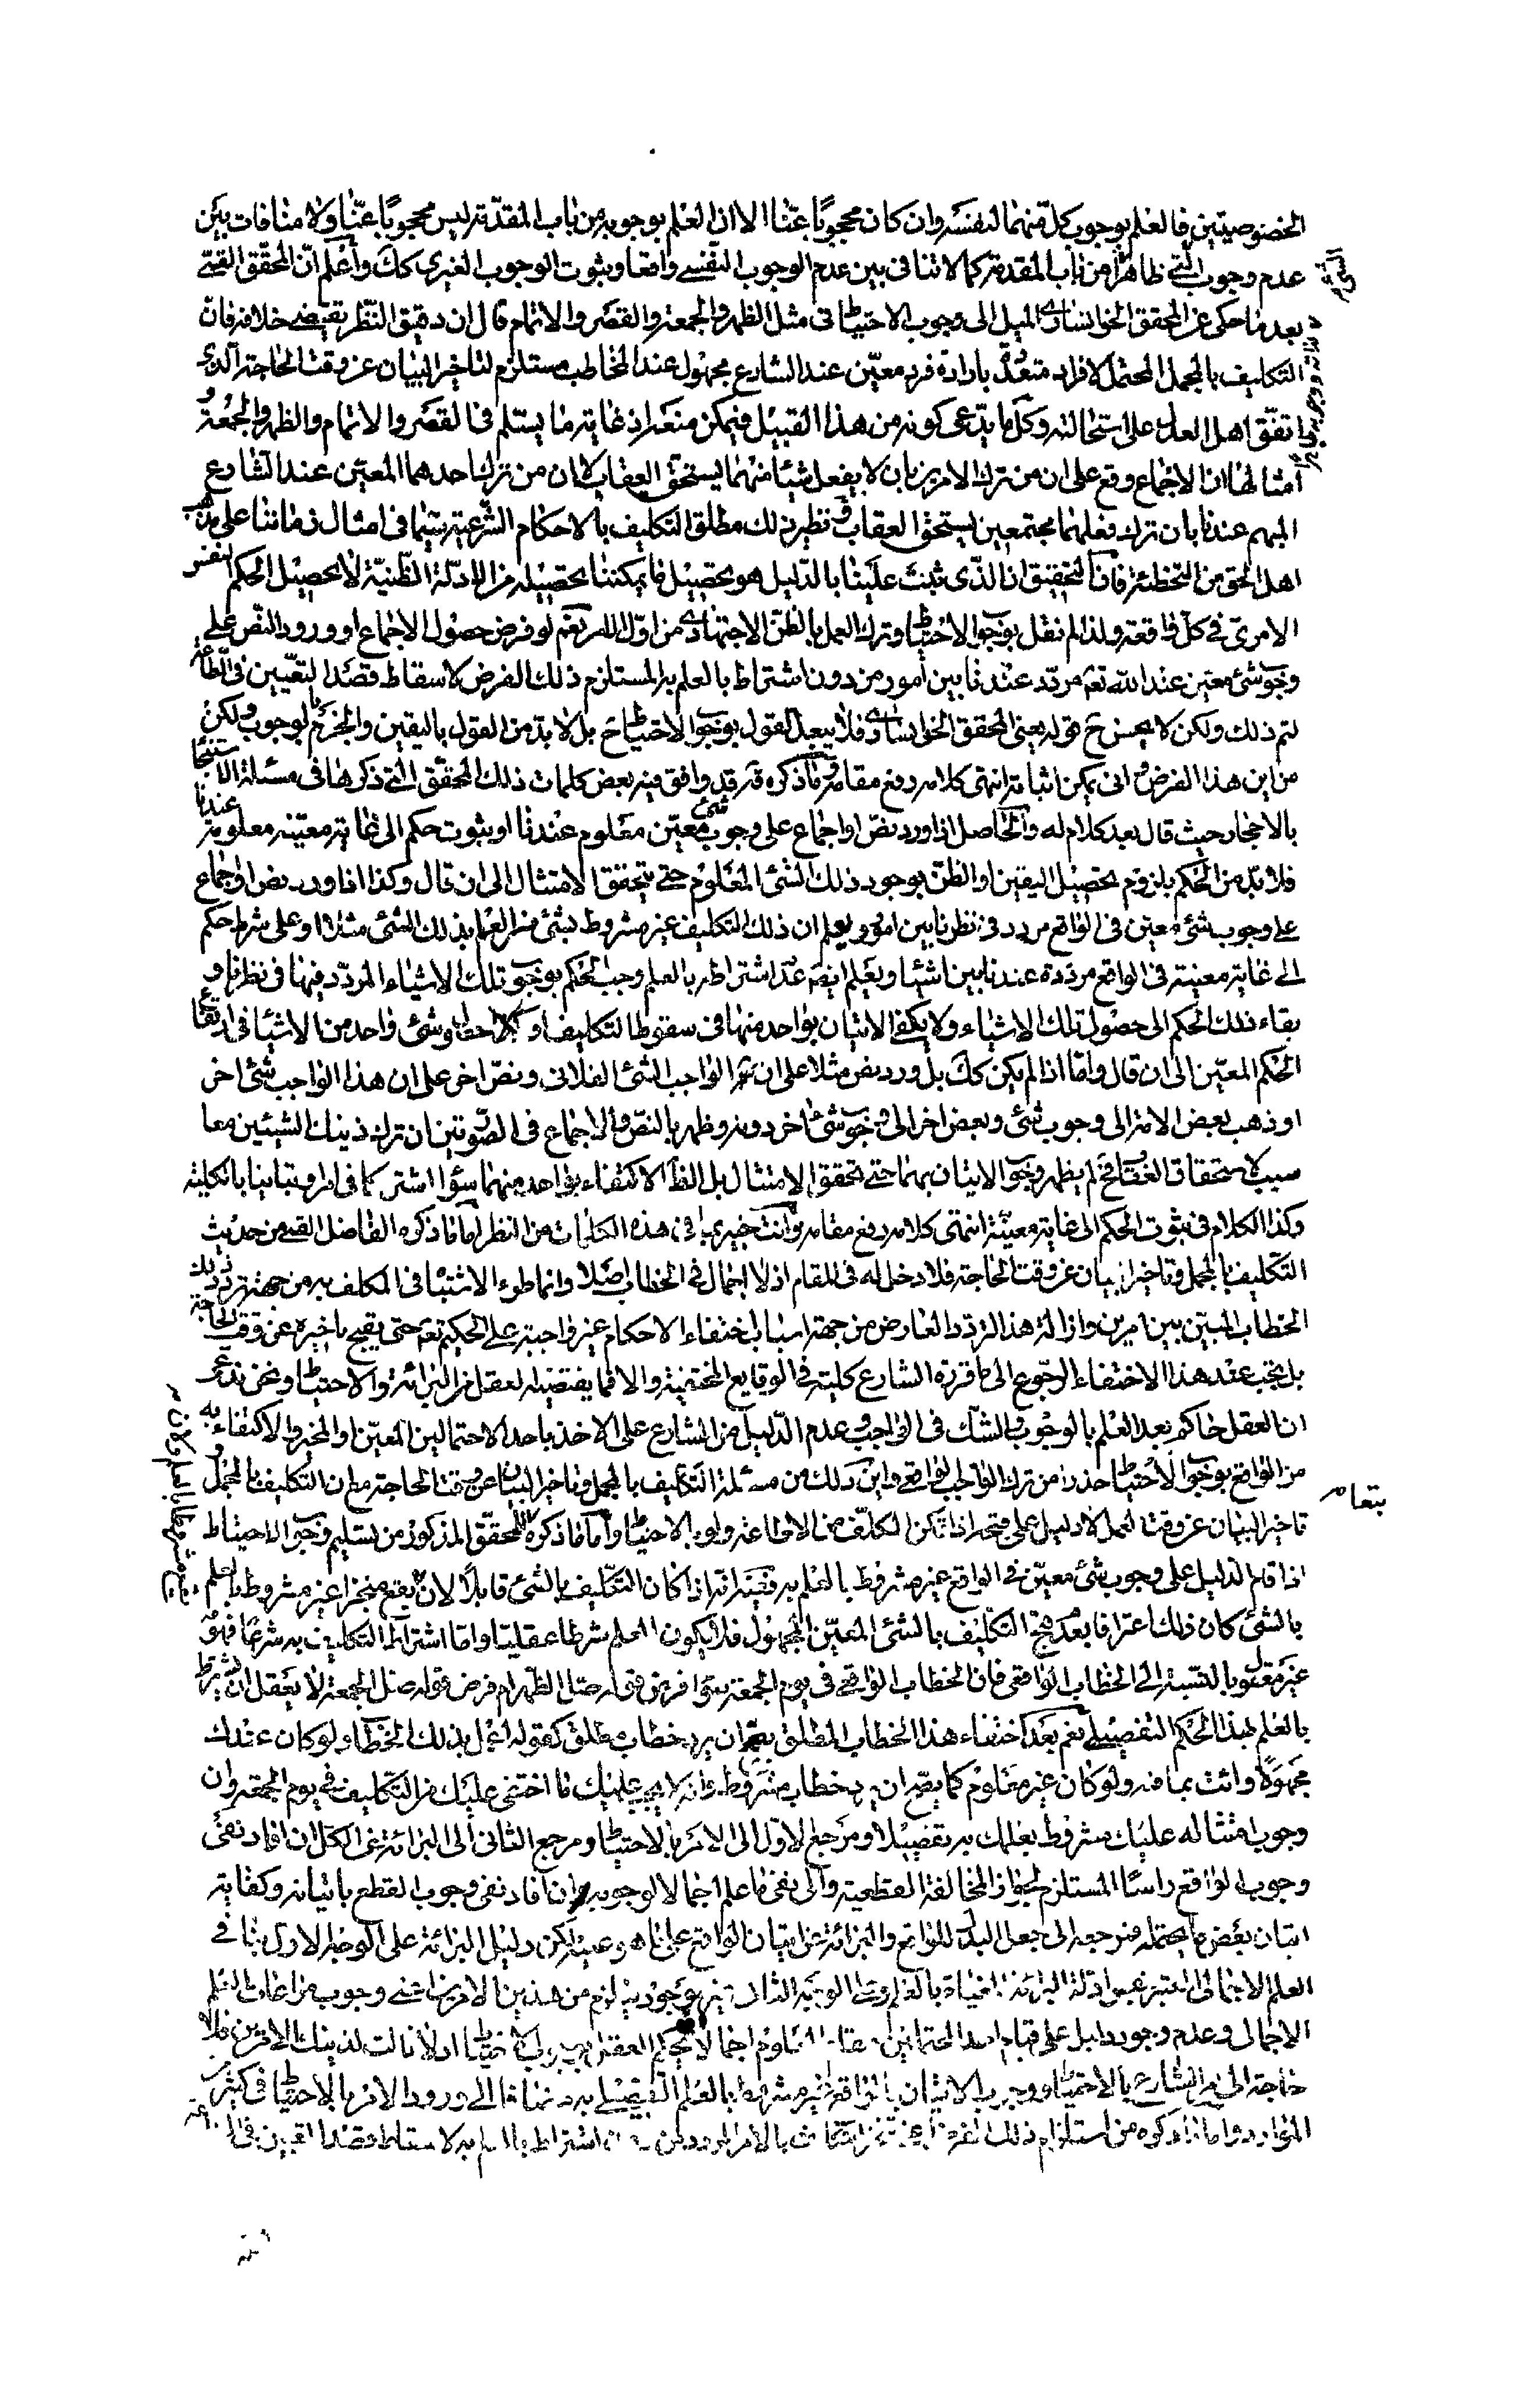 الخصوصيتين فالعلم بوجوب كل منهما لنفسه وان كان محجوبا عنا الا ان العلم بوجوبه من باب المقدمة ليس محجوبا عنا ولا منافات بين
عدم وجوب الشئ ظاهرا من باب المقدمة كما لا تنافى بين عدم الوجوب النفسى واقعا وبثوت الوجوب الغيرى كك واعلم ان المحقق القمى
بعد ما حكى عن المحقق الخوانسارى الميل الى وجوب الاحتياط فى مثل الظهر والجمعة والقصر والاتمام قال ان دقيق النظر يقتضى خلافه فان
التكليف بالمجمل المحتمل لافراد متعددة بارادة فرد معين عند الشارع مجهول عند المخاطب مستلزم لتاخير البيان عن وقت الحاجة الذى
اتفق اهل العدل على استحالته وكل ما يدعى كونه من هذا القبيل فيمكن منعه اذ غاية ما يسلم فى القصر والاتمام والظهر والجمعة و
امثالها ان الاجماع وقع على ان من ترك الامرين بان لا يفعل شيئا منهما يستحق العقاب لا ان من ترك احدهما المعين عند الشارع
المبهم عندنا بان ترك فعلهما مجتمعين يستحق العقاب ونظير ذلك مطلق التكليف بالاحكام الشرعية سيما فى امثال زماننا على مذهب
اهل الحق من التخطئة فان التحقيق ان الذى ثبت علينا بالدليل هو تحصيل ما يمكننا تحصيله من الادلة الظنية لا تحصيل الحكم النفس
الامرى فى كل واقعة ولذا لم نقل بوجوب الاحتياط وترك العمل بالظن الاجتهادى من اول الامر نعم لو فرض حصول الاجماع او ورود النص على
وجوب شئ معين عند الله تعم مردد عندنا بين امور من دون اشتراط بالعلم به المستلزم ذلك الفرض لاسقاط قصد التعيين فى الطاعة
لتم ذلك ولكن لا يحسن ح قوله يعنى المحقق الخوانسارى فلا يبعد القول بوجوب الاحتياط ح بل لابد من القول باليقين والجزم بالوجوب ولكن
من اين هذا الفرض وانى يمكن اثباته انتهى كلامه رفع مقامه وما ذكره قده قد وافق فيه بعض كلمات ذلك المحقق التى ذكرها فى مسئلة الاستنجا
بالاحجار حيث قال بعد كلام له والحاصل اذا ورد نص او اجماع على وجوب شئ معين معلوم عندنا او بثوت حكم الى غاية معينة معلومة عندنا
فلا بد من الحكم بلزوم تحصيل اليقين او الظن بوجود ذلك الشئ المعلوم حتى يتحقق الامتثال الى ان قال وكذا اذا ورد نص او اجماع
على وجوب شئ معين فى الواقع مردد فى نظرنا بين امور ويعلم ان ذلك التكليف غير مشروط بشئ من العلم بذلك الشئ مثلا او على ثبوت حكم
الى غاية معينة فى الواقع مرددة عندنا بين اشياء ويعلم ايضا عدم اشتراطه بالعلم وجب الحكم بوجوب تلك الاشياء المردد فيها فى نظرنا و
بقاء ذلك الحكم الى حصول تلك الاشياء ولا يكفى الاتيان بواحد منها فى سقوط التكليف وكذا حصول شئ واحد من الاشياء فى ارتفاع
الحكم المعين الى ان قال واما اذا لم يكن كك بل ورد نص مثلا على ان الواجب الشئ الفلانى ونص اخر على ان هذا الواجب شئ اخر
او ذهب بعض الامة الى وجوب شئ وبعض اخر الى وجوب شئ اخر دونه وظهر بالنص والاجماع فى الصورتين ان ترك ذينك الشيئين معا
سبب لاستحقاق العقاب فح لم يظهر وجوب الاتيان بهما حتى يتحقق الامتثال بل الظ الاكتفاء بواحد منهما سواء اشتركا فى امر او تباينا بالكلية
وكذا الكلام فى ثبوت الحكم الى غاية معينة انتهى كلامه رفع مقامه وانت خبير بما فى هذه الكلمات من النظر اما ما ذكره الفاضل القمى من حديث
التكليف بالمجمل وتاخير البيان عن وقت الحاجة فلا دخل له فى المقام اذ لا اجمال فى الخطاب اصلا وانما طرء الاشتباه فى المكلف به من جهة تردد ذلك
الخطاب المبين بين امرين وازالة هذا التردد العارض من جهة اسباب اختفاء الاحكام غير واجبة على الحكيم تعم حتى يقبح تاخيره عن وقت الحاجة
بل يجب عند هذا الاختفاء الرجوع الى ما قرره الشارع كلية فى الوقايع المختفية والا فما يقتضيه العقل من البرائة والاحتياط ونحن ندعى
ان العقل حاكم بعد العلم بالوجوب والشك فى الواجب وعدم الدليل من الشارع على الاخذ باحد الاحتمالين المعين او المخير والاكتفاء به
من الواقع بوجوب الاحتياط حذرا من ترك الواجب الواقعى واين ذلك من مسئلة التكليف بالمجمل وتاخير البيان عن وقت الحاجة مع ان التكليف بالمجمل و
تاخير البيان عن وقت العمل لا دليل على قبحه اذا تمكن المكلف من الاطاعة ولو بالاحتياط واما ما ذكره المحقق المذكور من تسليم وجوب الاحتياط
اذا قام الدليل على وجوب شئ معين فى الواقع غير مشروط بالعلم به ففيه انه اذا كان التكليف بالشئ قابلا لان يقع منجزا غير مشروط بالعلم
بالشئ كان ذلك اعترافا بعدم قبح التكليف بالشئ المعين المجهول فلا يكون العلم شرطا عقليا واما اشتراط التكليف به شرعا فهو
غير معقول بالنسبة الى الخطاب الواقعى فان الخطاب الواقعى فى يوم الجمعة سواء فرض قوله صل الظهر ام فرض قوله صل الجمعة لا يعقل ان يشترط
بالعلم بهذا الحكم التفصيلى نعم بعد اختفاء هذا الخطاب المطلق يصح ان يرد خطاب مطلق كقوله اعمل بذلك الخطاب ولو كان عندك
مجهولا وائت بما فيه ولو كان غير معلوم كما يصح ان يرد خطاب مشروط وانه لا يجب عليك ما اختفى عليك من التكليف فى يوم الجمعة وان
وجوب امتثاله عليك مشروط بعلمك به تفصيلا ومرجع الاول الى الامر بالاحتياط ومرجع الثانى الى البرائة عن الكل ان افاد نفى
وجوب الواقع راسا المستلزم لجواز المخالفة القطعية والى نفى ما علم اجمالا لوجوبه وان افاد نفى وجوب القطع باتيانه وكفاية
اتيان بعض ما يحتمله فمرجعه الى جعل البدل للواقع والبرائة عن اتيان الواقع على ما هو عليه لكن دليل البرائة على الوجه الاول ينافى
الاجمالى وعدم وجود دليل على قيام احد المحتملين
حاجة الى امر الشارع بالاحتياط ووجوب الاتيان بالواقع غير مشروط بالعلم التفصيلى به مضافا الى ورود الامر بالاحتياط فى كثير من
الموارد واما ما ذكره من استلزام ذلك الفرض
بتمام